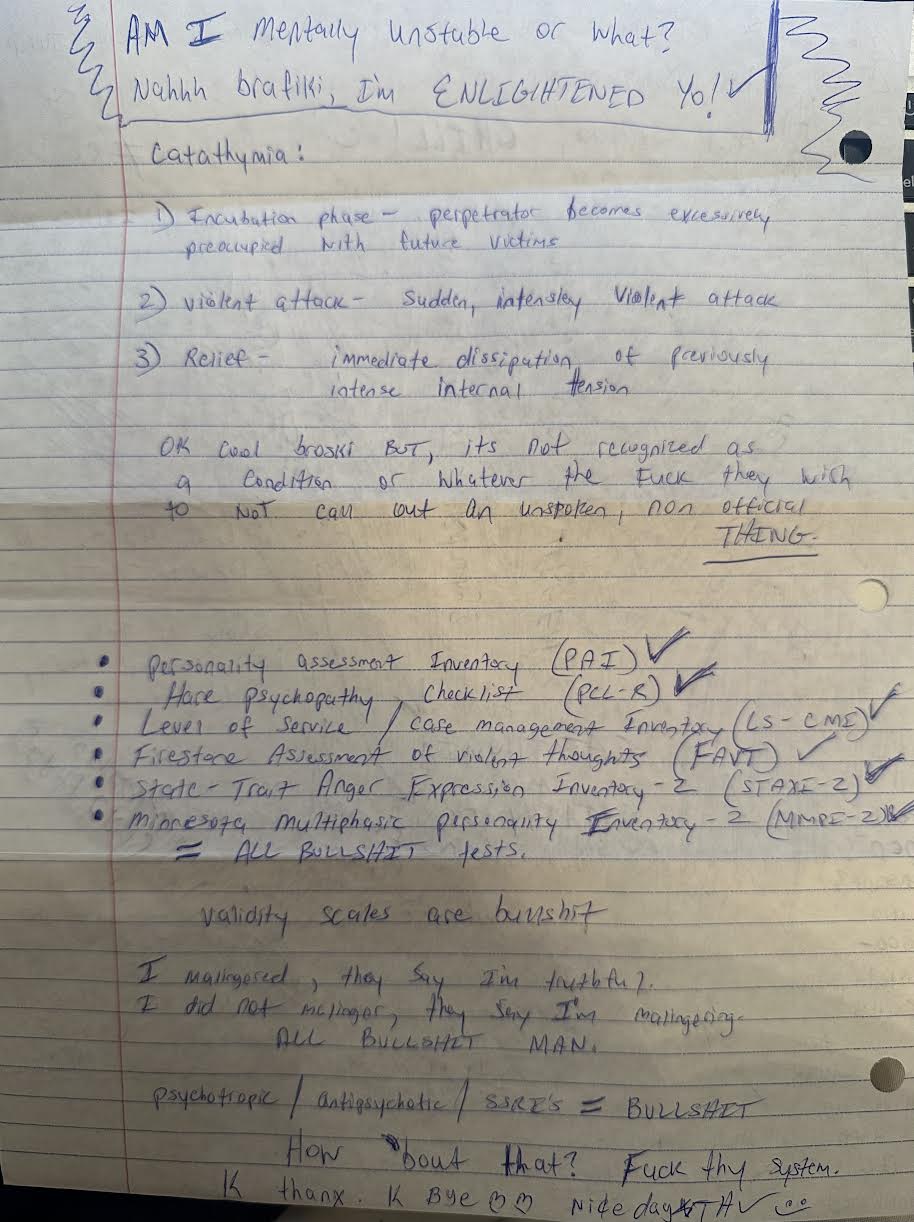 AM I mentally unstable or what?
Nahhh brafiki, I'm ENLIGHTENED Yo!
Catathymia:
1) Incubation phase - perpetrator becomes excessively
preoccupied with future victims
2) violent attack - Sudden, intensley Violent attack
3) Relief - immediate dissipation of previously
intense internal tension
OK Cool broski BUT, its not recognized as
a Condition or whatever the Fuck they wish
to NOT call out an unspoken, non official
THING.
• Personality assessment Inventory (PAI) ✓
• Hare psychopathy Checklist (PCL-R) ✓
• Level of Service / case management Inventory (LS-CMI) ✓
• Firestone Assessment of violent thoughts (FAVT) ✓
• State-Trait Anger Expression Inventory-2 (STAXI-2) ✓
• Minnesota multiphasic personality Inventory-2 (MMPI-2) ✓
= ALL BULLSHIT tests.
validity scales are bullshit
I malingered, they say I'm truthful.
I did not malinger, they say I'm malingering.
ALL BULLSHIT MAN.
psychotropic / antipsychotic / SSRI'S = BULLSHIT
How 'bout that? Fuck thy system.
K thanx. K Bye ♡♡ Nice day